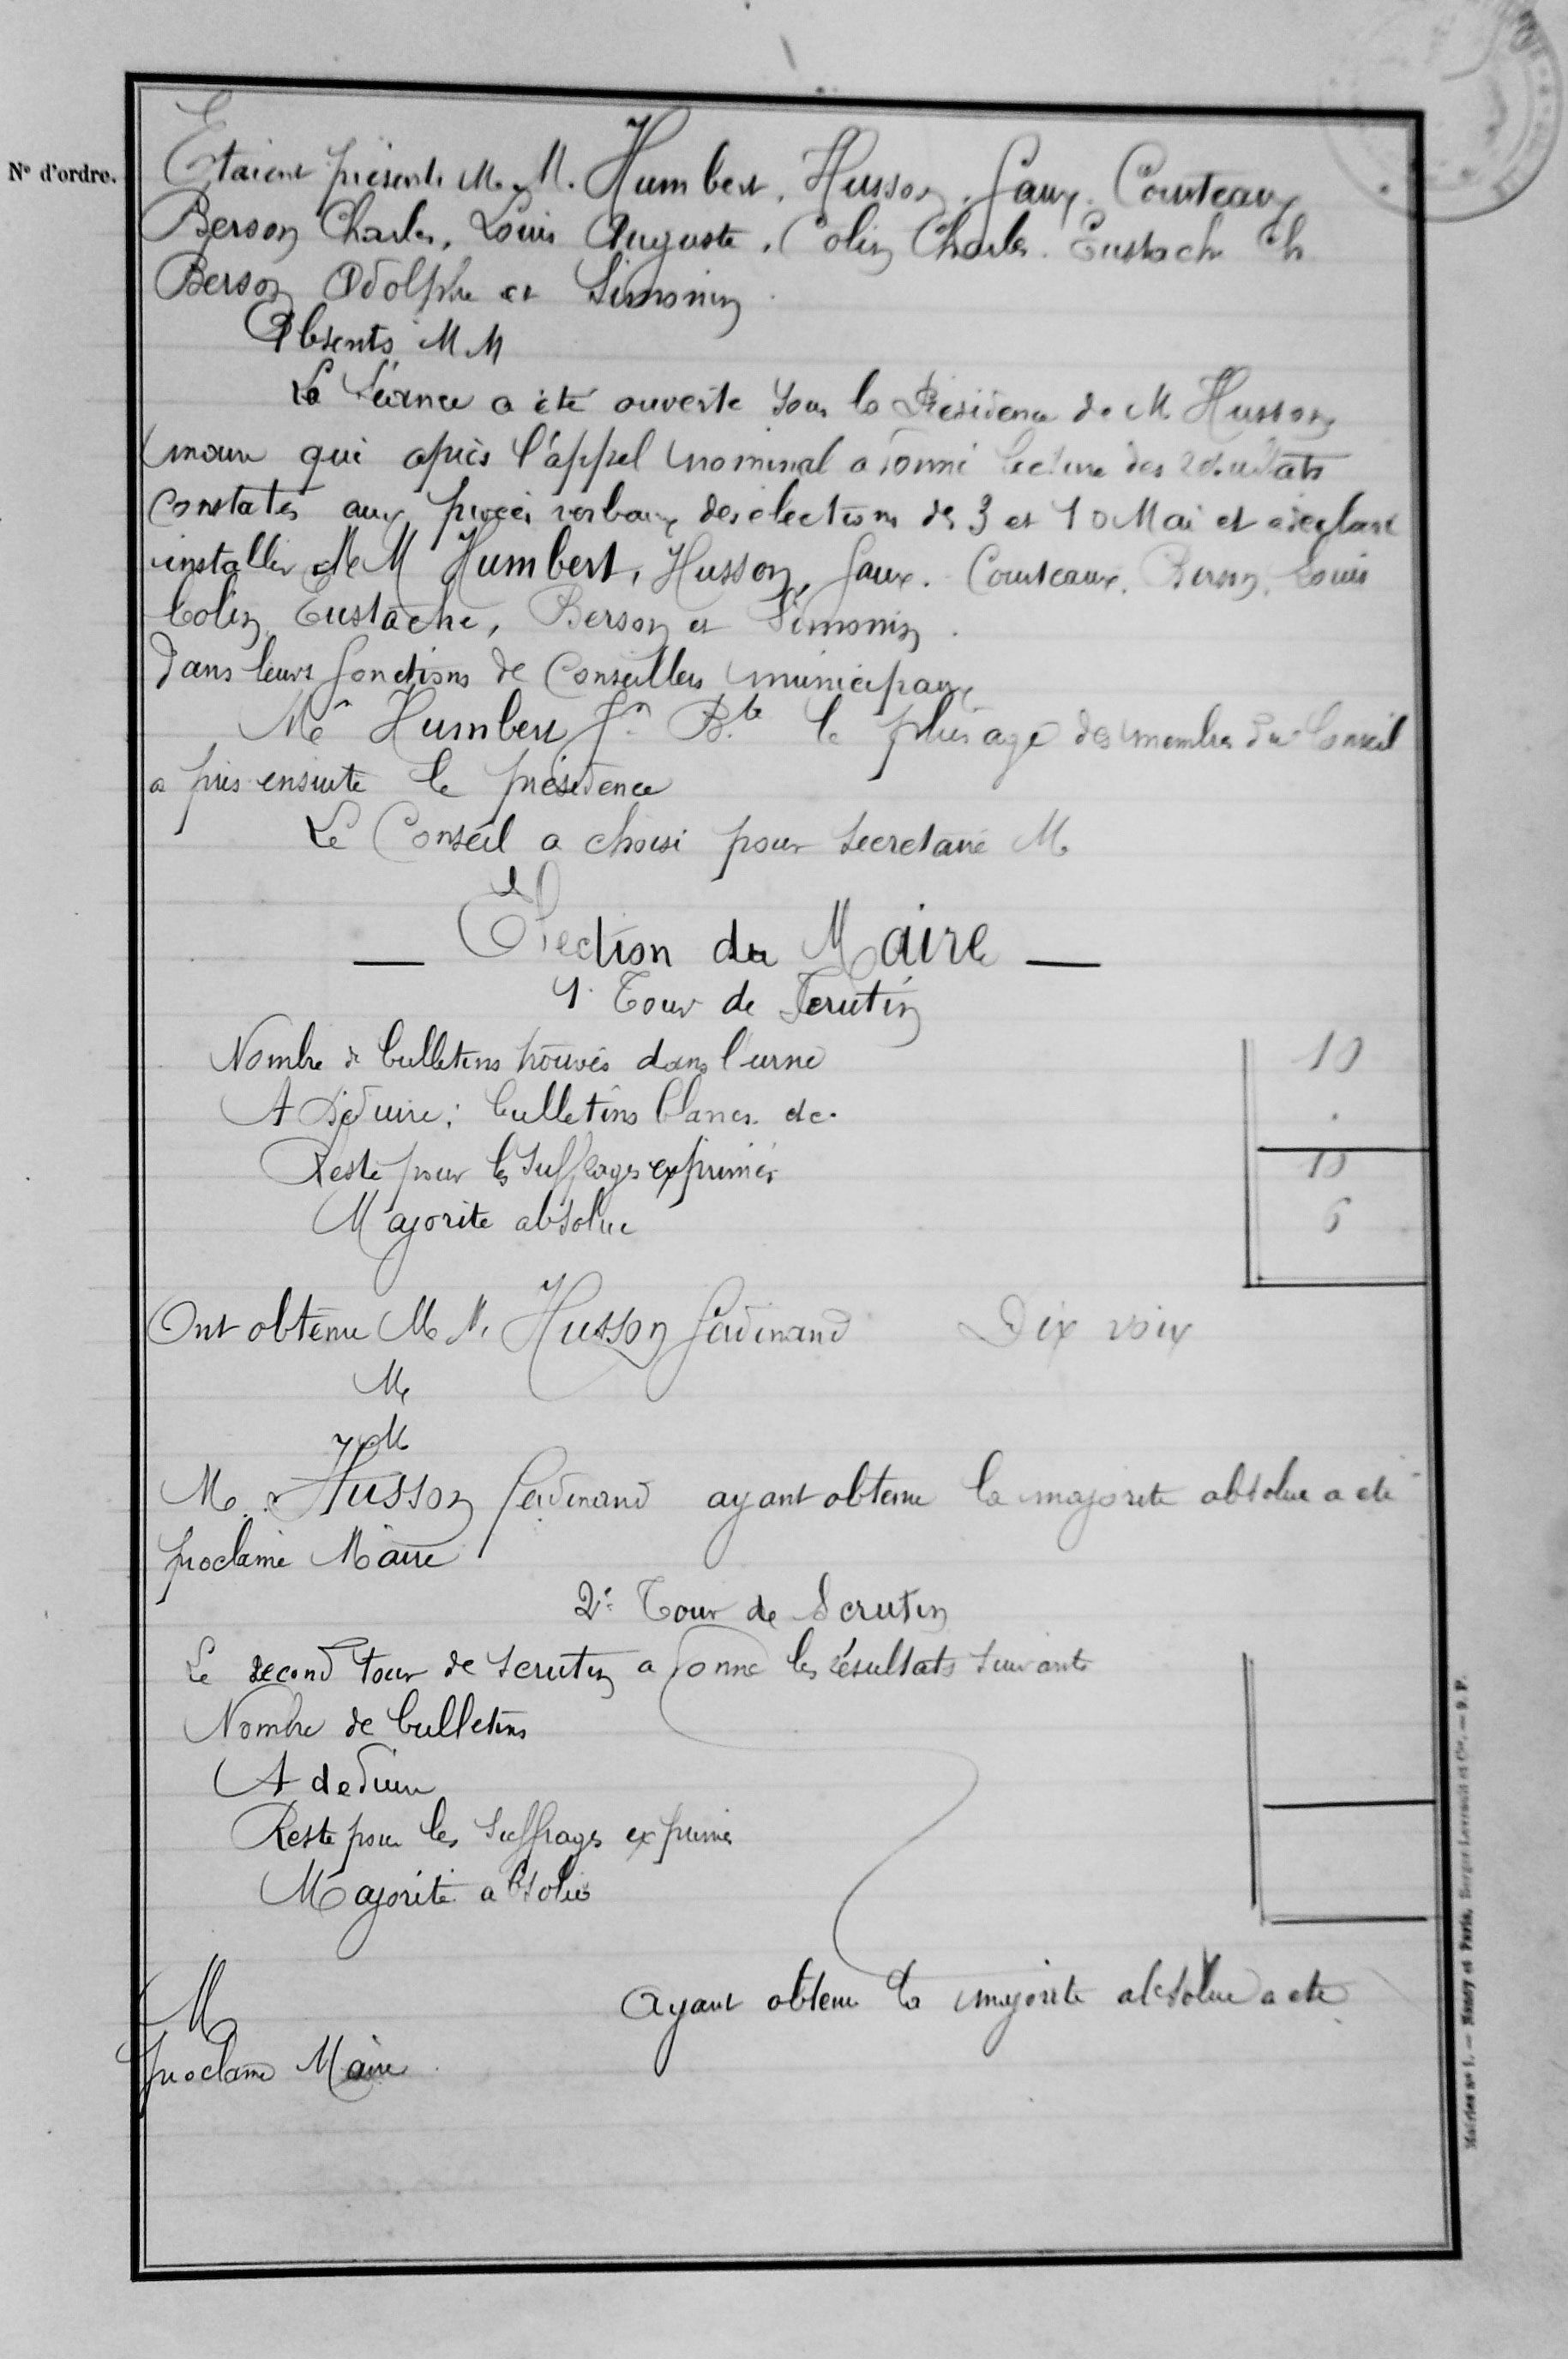 N° d'ordre.
Etaient présents M. M. Humbert, Husson, Gaux, Courteaux
Berson Charles, Louis Auguste, Colin Charles. Eustach Ch
Berson Adolphe et Simonin
Absents M M
La Séance a été ouverte sous la Présidence de M Husson
maire qui après l'appel nominal a donné lecture des résultats
constatés aux procès verbaux des élections des 3 et 10 Mai et a déclaré
installés M M Humbert, Husson, Gaux. Courteaux. Berson. Louis
Colin, Eustache, Berson et Simonin.
dans leurs fonctions de Conseillers municipaux
Mr Humbert Jn Bte le plus agé des membres du Conseil
a pris ensuite la présidence
Le Conseil a choisi pour secretaire M
— Election du Maire —
1. Tour de Scrutin
Nombre de bulletins trouvés dans l'urne 10
A Déduire : bulletins blancs. etc. .
Reste pour les suffrages exprimés 10
Majorite absolue 6
Ont obtenu M M. Husson Ferdinand Dix voix
M
M
M. Husson Ferdinand ayant obtenu la majorité absolue a été
proclamé Maire
2e Tour de Scrutin
Le second tour de scrutin a donné les résultats suivants
Nombre de bulletins
A deduire
Reste pour les suffrages exprimés
Majorité absolue
M ayant obtenu la majorité absolue a ete
proclamé Maire
Mairies n° 1. — Nancy et Paris, Berger-Levrault et Cie. — 9. P.